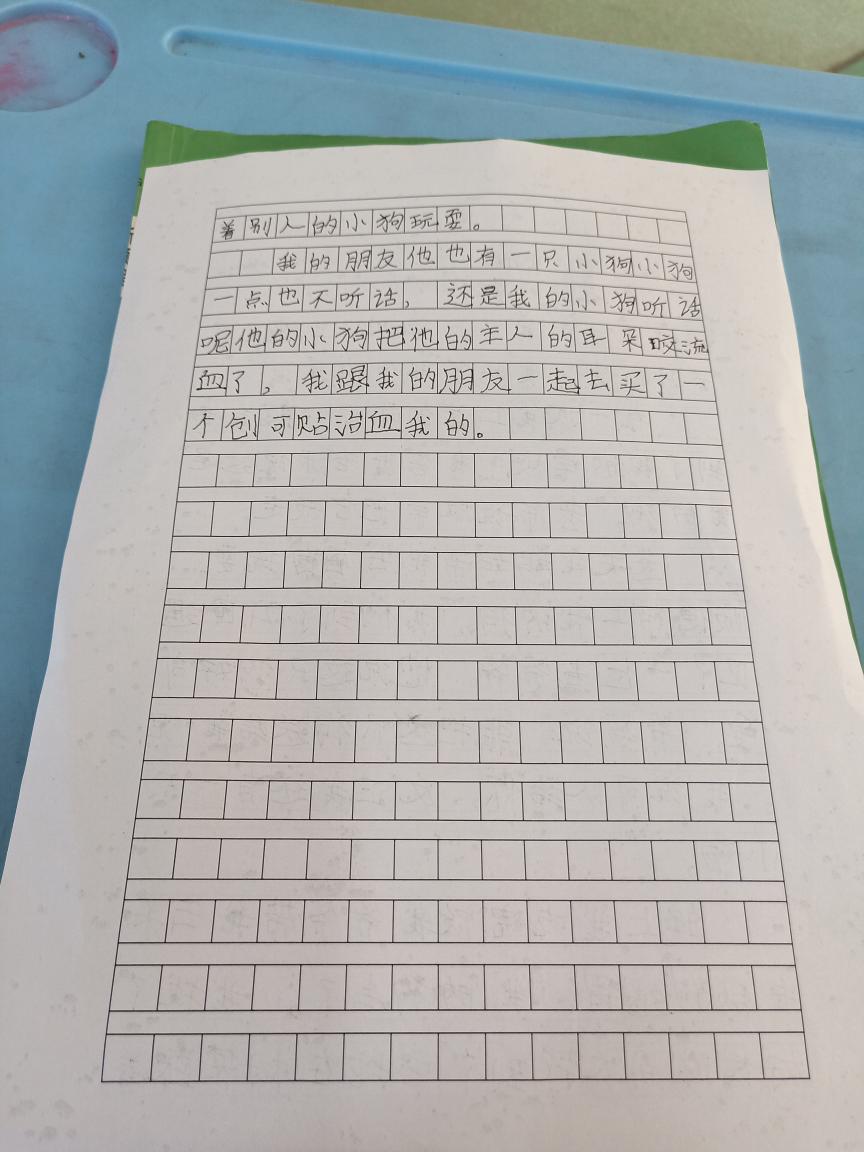 着别人的小狗玩耍。
我的朋友他也有一只小狗小狗
一点也不听话，还是我的小狗听话
呢他的小狗把他的主人的耳朵咬流
血了，我跟我的朋友一起去买了一
个创可贴治血我的。